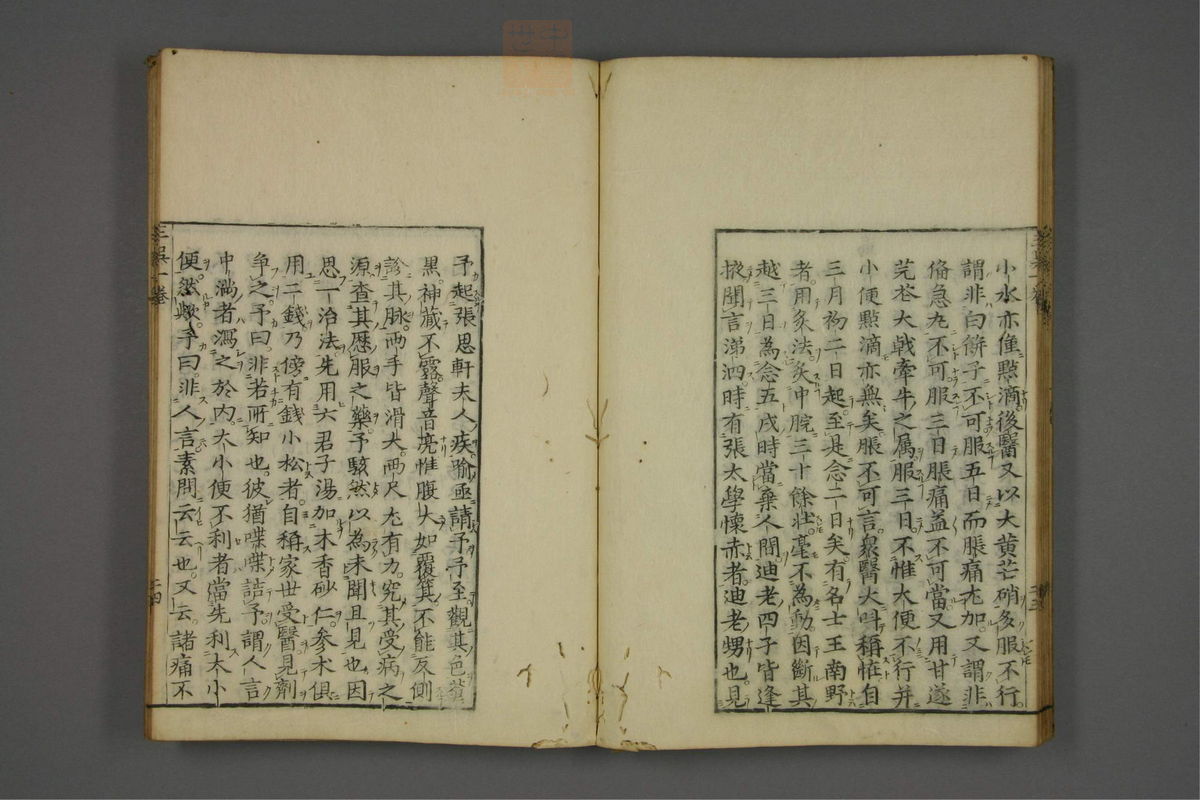 小水亦僅點滴後醫又以大黄芒硝多服不行
謂非白餅子不可服五日而脹痛尤加又謂非
備急丸不可服三日脹痛益不可當又用甘遂
芫花大戟牽牛之属服三日不惟大便不行并
小便點滴亦無矣脹不可言衆醫大呌稱恠自
三月初二日起至是念二日矣有名士王南野
者用灸法灸中脘三十餘壯毫不為動因斷其
越三日為念五戌時當棄人間迪老四子皆逢
掖聞言涕泗時有張太學懷赤者迪老甥也見
予起張思軒夫人疾喻亟請予予至觀其色蒼
黒神藏不露聲音亮惟腹大如覆箕不能反側
診其脉兩手皆滑大兩尺尤有力究其受病之
源查其歷服之藥予駭然以為未聞且見也因
思一治法先用六君子湯加木香砂仁參术俱
用二錢乃傍有錢小松者自稱家世受醫見劑
争之予曰非若所知也彼猶喋喋誥予謂人言
中滿者瀉之於内大小便不利者當先利大小
便然歟予曰非人言素問云云也又云諸痛不